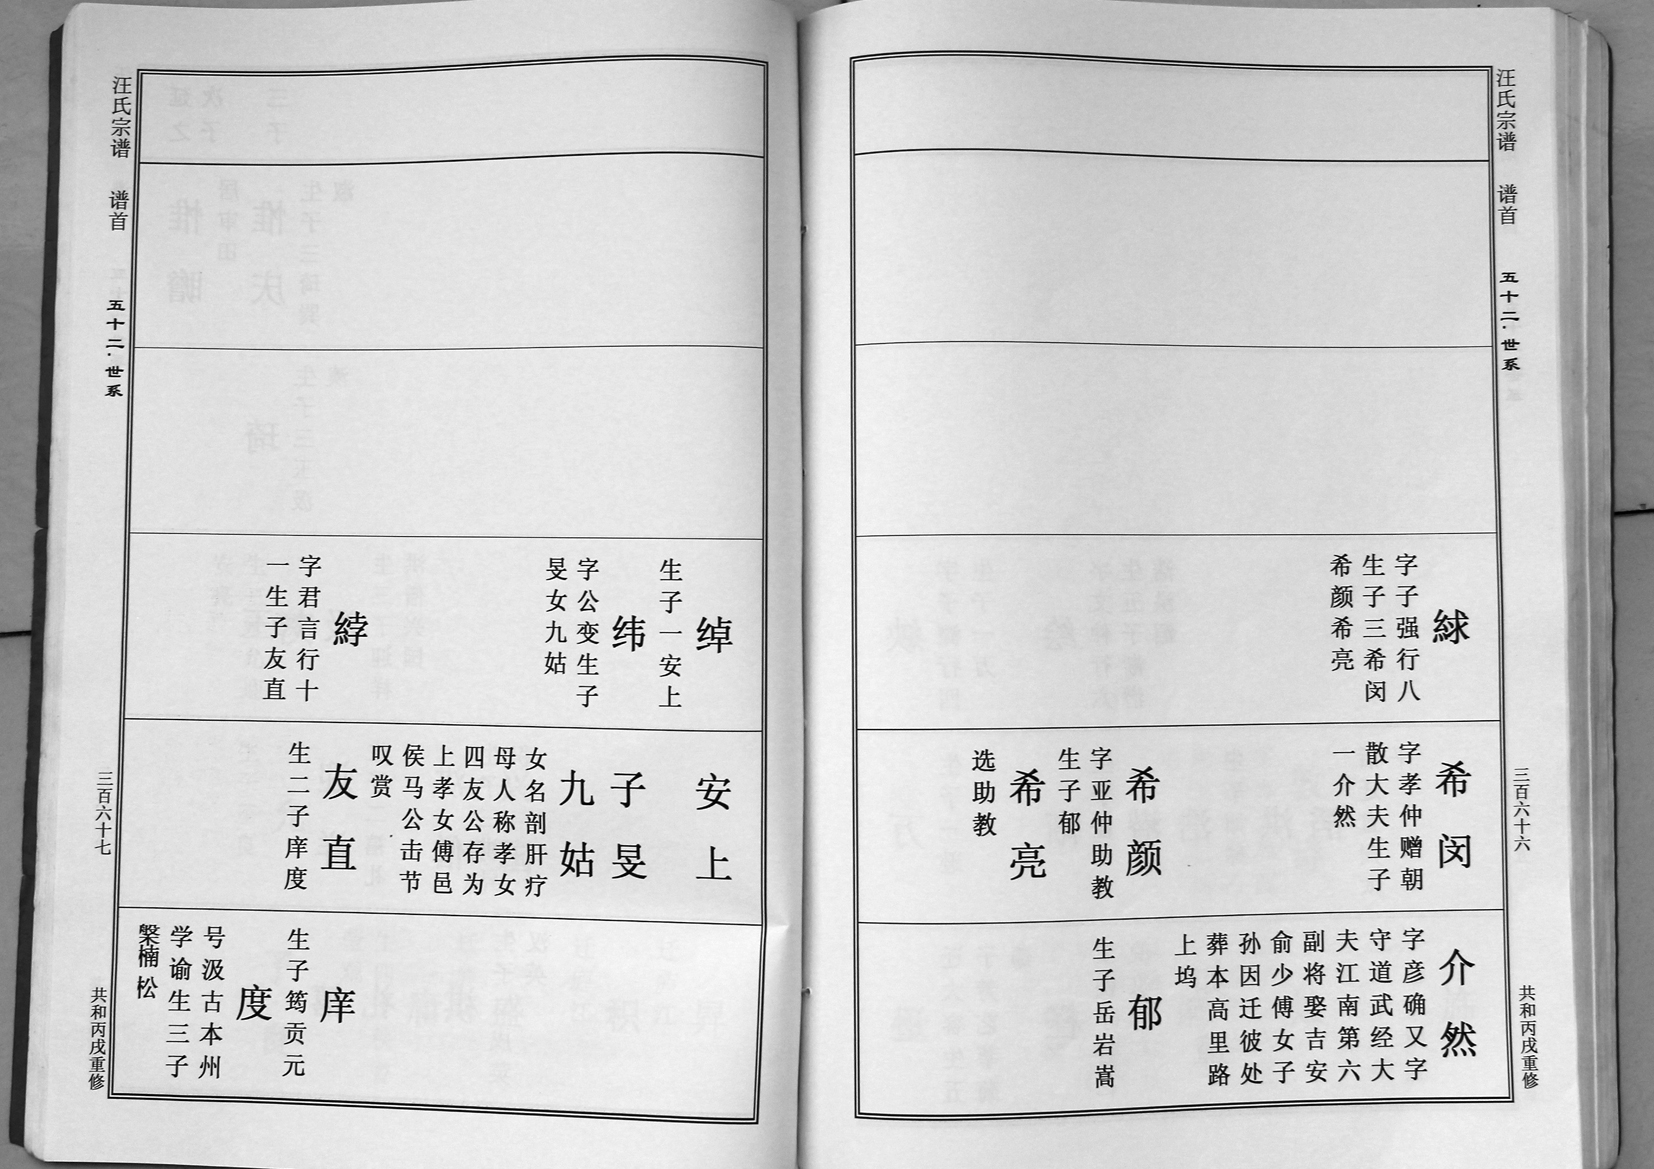 汪氏宗谱
谱首
五十二·世系
三百六十六
共和丙戌重修
絿
字子强行八
生子三希闵
希颜希亮
希闵
字孝仲赠朝
散大夫生子
一介然
希颜
字亚仲助教
生子郁
希亮
选助教
介然
字彦确又字
守道武经大
夫江南第六
副将娶吉安
俞少傅女子
孙因迁彼处
葬本高里路
上坞
郁
生子岳岩嵩
绰
生子一安上
纬
字公变生子
旻女九姑
綍
字君言行十
一生子友直
安上
子旻
九姑
女名剖肝疗
母人称孝女
四友公存为
上孝女傅邑
侯马公击节
叹赏
友直
生二子庠度
庠
生子筠贡元
度
号汲古本州
学谕生三子
槃楠松
汪氏宗谱
谱首
五十二·世系
三百六十七
共和丙戌重修